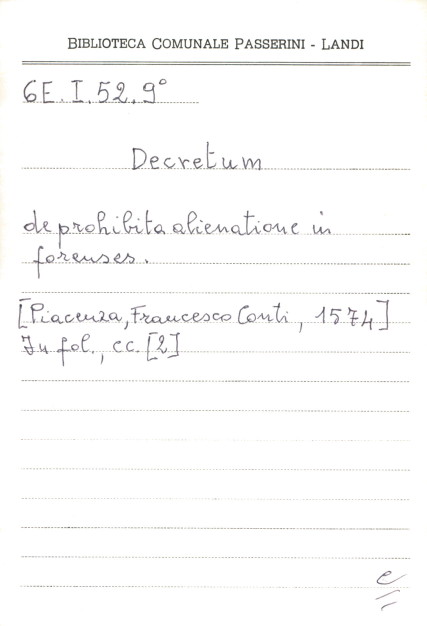 BIBLIOTECA COMUNALE PASSERINI - LANDI
6E. I. 52. 9°
Decretum
de prohibita alienatione in
forenses.
[Piacenza, Francesco Conti, 1574]
In fol., cc. [2]
e